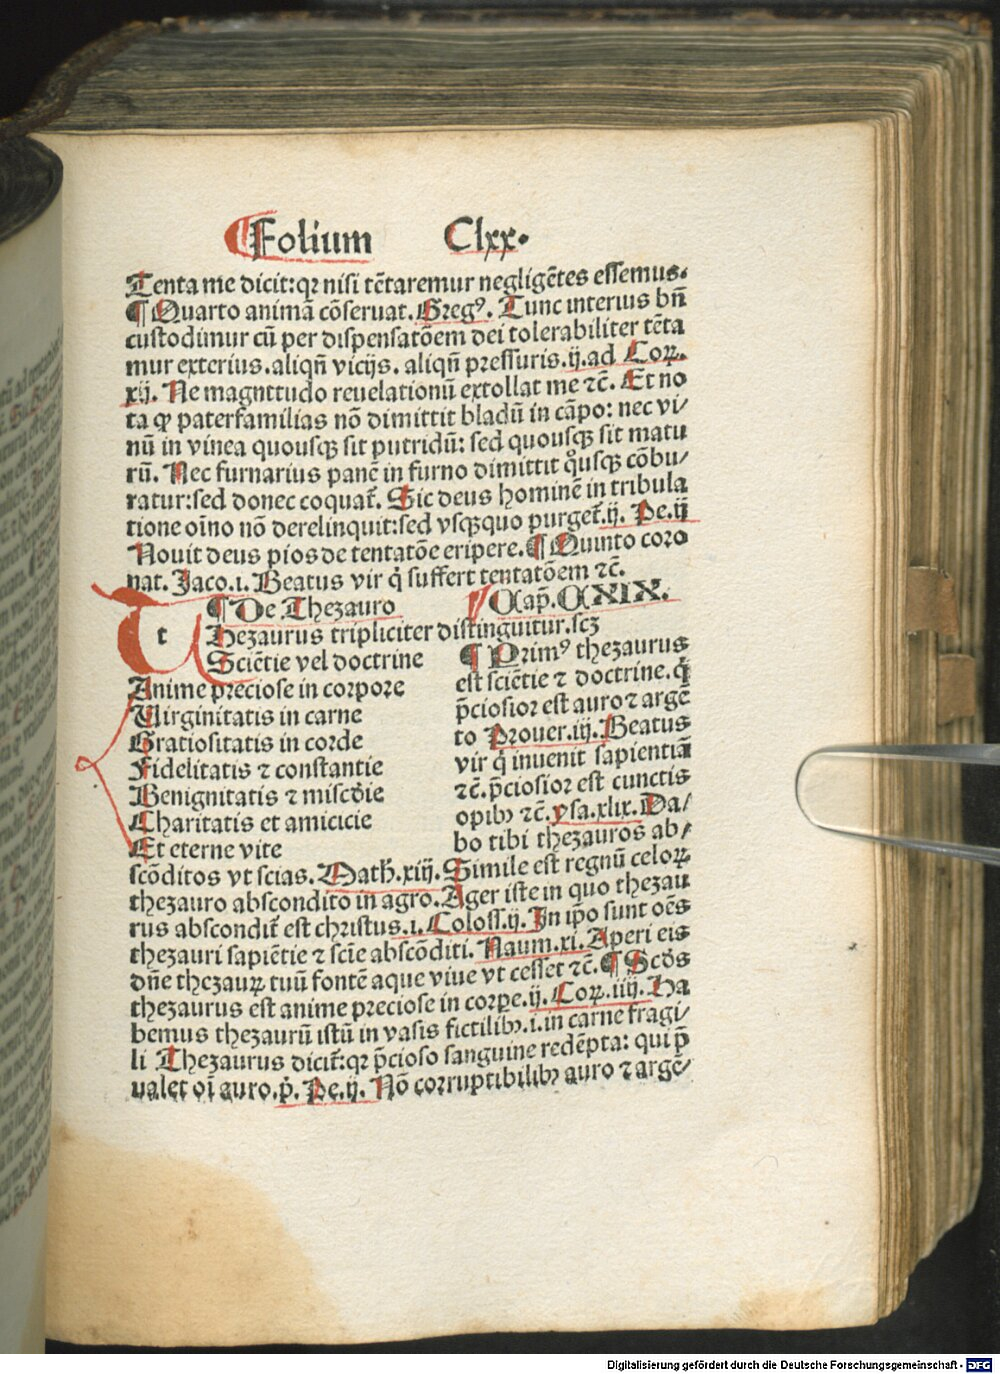 Folium Clxx.
Tenta me dicit:qꝛ nisi tētaremur negligētes essemus.
¶ Quarto animā cōseruat. Greg⁹. Tunc interius bn̄
custodimur cū per dispensatōem dei tolerabiliter tēta
mur exterius. aliqn̄ vicijs. aliqn̄ pressuris. ij. ad Coꝝ.
xij. Ne magnttudo reuelationū extollat me ⁊c̄. Et no
ta ꝙ paterfamilias nō dimittit bladū in cāpo: nec vi/
nū in vinea quousqꝫ sit putridū: sed quousqꝫ sit matu
rū. Nec furnarius panē in furno dimittit qͦusqꝫ cōbu/
ratur:sed donec coquat᷑. Sic deus hominē in tribula
tione oīno nō derelinquit:sed vsqꝫquo purget᷑. ij. Pe. ij
Nouit deus pios de tentatōe eripere. ¶ Quinto coro
nat. Jaco. i. Beatus vir q̇ suffert tentatōem ⁊c̄.
¶ De Thezauro Cap. CXIX.
t Hezaurus tripliciter distinguitur. scꝫ
Sciētie vel doctrine
Anime preciose in corpore
Uirginitatis in carne
Gratiositatis in corde
Fidelitatis ⁊ constantie
Benignitatis ⁊ misc̄die
Charitatis et amicicie
Et eterne vite
¶ Prim⁹ thezaurus
est sciētie ⁊ doctrine. q̇
p̄ciosior est auro ⁊ argē
to Prouer. iij. Beatus
vir q̇ inuenit sapientiā
⁊c̄. p̄ciosior est cunctis
opibꝫ ⁊c̄. ysa. xlix. Da/
bo tibi thezauros ab/
scōditos vt scias. Math̄. xiij. Simile est regnū celoꝝ
thezauro abscondito in agro. Ager iste in quo thezau
rus abscondit᷑ est christus. i. Coloss. ij. In ip̄o sunt oēs
thezauri sapiētie ⁊ sciē abscōditi. Naum. xi. Aperi eis
dn̄e thezauꝝ tuū fontē aque viue vt cesset ⁊c̄. ¶ Scds
thezaurus est anime preciose in corꝑe. ij. Coꝝ. iiij. Ha
bemus thezaurū istū in vasis fictilibꝫ. i. in carne fragi/
li Thezaurus dicit᷑:qꝛ p̄cioso sanguine redēpta: qui p̄
ualet oī auro. p̄. Pe. ij. Nō corruptibilibꝫ auro ⁊ argē/
Digitalisierung gefördert durch die Deutsche Forschungsgemeinschaft - DFG